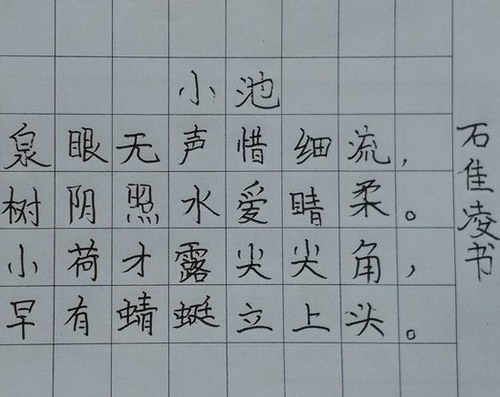 小池
泉眼无声惜细流，
树阴照水爱睛柔。
小荷才露尖尖角，
早有蜻蜓立上头。
石佳凌书